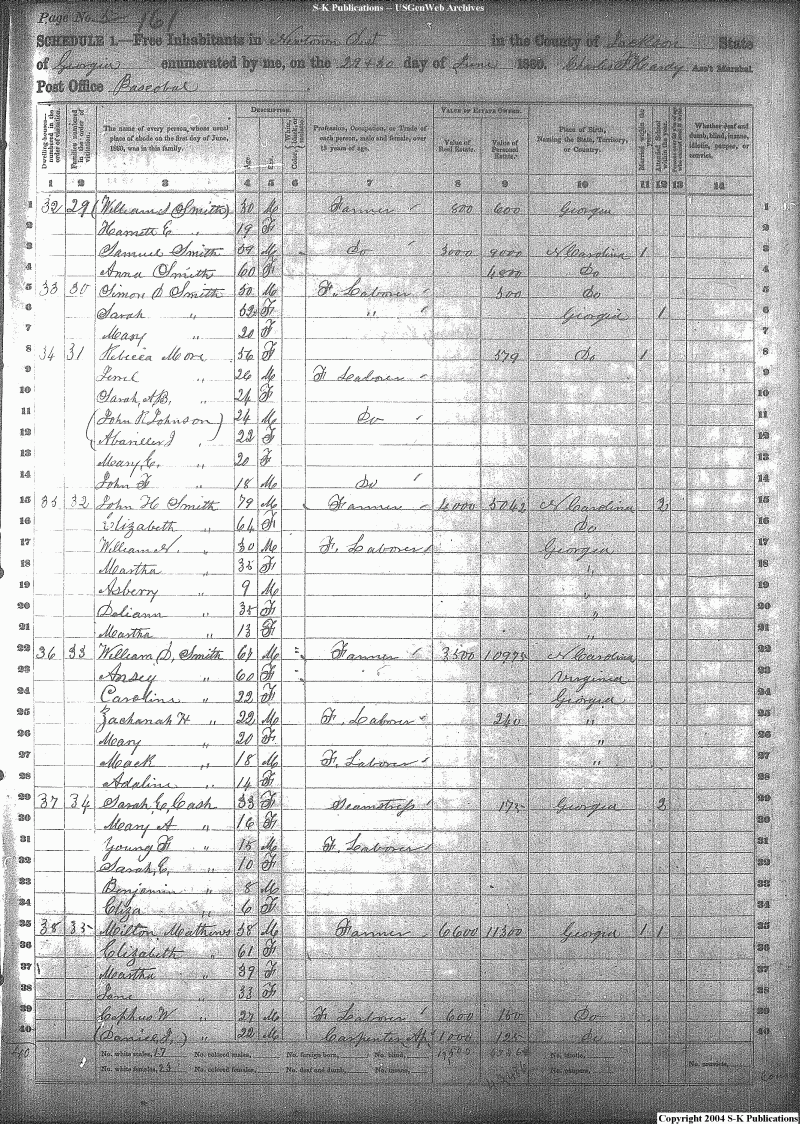 S-K Publications – USGenWeb Archives
Page No. 5 161
SCHEDULE 1.—Free Inhabitants in Newtown Dist in the County of Jackson State
of Georgia enumerated by me, on the 29 & 30 day of June 1860. Charles S. Hardy Ass't Marshal.
Post Office
Dwelling-houses—numbered in the order of visitation. Families numbered in the order of visitation. The name of every person whose usual place of abode on the first day of June, 1860, was in this family. DESCRIPTION. Age. Sex. Color Profession, Occupation, or Trade of each person, male and female, over 15 years of age. VALUE OF ESTATE OWNED. Value of Real Estate. Value of Personal Estate. Place of Birth, Naming the State, Territory, or Country. Married within the year. Attended School within the year. Whether deaf and dumb, blind, insane, idiotic, pauper, or convict.
1 2 3 4 5 6 7 8 9 10 11 12 13 14
1 32 29 (William S Smith) 30 M Farmer 800 600 Georgia 1
2 E " 19 F 2
3 Samuel Smith 59 M Do 3000 9000 N Carolina 1 3
4 Anna Smith 60 F 4000 Do 4
5 33 30 Simon S Smith 50 M F. Laborer 300 Do 5
6 Sarah " 52 F " Georgia 1 6
7 Mary " 20 F 7
8 34 31 Rebecca More 56 F 579 Do 1 8
9 " 26 M F Laborer 9
10 Sarah, A B, " 24 F 10
11 (John R Johnson) 24 M Do 11
12 22 F 12
13 Mary, E, " 20 F 13
14 John F " 18 M Do 14
15 35 32 John H Smith 79 M Farmer 4000 5042 N Carolina 2 15
16 Elizabeth " 64 F Do 16
17 William N. " 30 M F. Laborer Georgia 17
18 Martha " 35 F " 18
19 Asberry " 9 M " 19
20 Doliann " 35 F " 20
21 Martha " 13 F " 21
22 36 33 William S, Smith 61 M Farmer 3500 10975 N Carolina 22
23 Ansey " 60 F Virginia 23
24 Caroline " 22 F Georgia 24
25 Zachariah H " 22 M F. Laborer 240 " 25
26 Mary " 20 F " 26
27 Mack " 18 M F. Laborer " 27
28 Adaline " 14 F 28
29 37 34 Sarah, E, Cash 33 F Seamstress 175 Georgia 2 29
30 Mary A " 16 F 30
31 Young F " 15 M F. Laborer 31
32 Sarah, E, " 10 F 32
33 Benjamin " 8 M 33
34 Eliza " 6 F 34
35 38 35 Milton Mathews 58 M Farmer 6600 11300 Georgia 1 1 35
36 Elizabeth " 61 F 36
37 Martha " 39 F 37
38 Jane " 33 F 38
39 Cephus W " 27 M F Laborer 600 150 Do 39
40 (Daniel J,) " 22 M Carpenter Ap 1000 125 Do 40
40 No. white males, 17 No. colored males, No. foreign born, No. blind, No. idiotic,
No. white females, 23 No. colored females, No. deaf and dumb, No. insane, No. paupers, No. convicts,
Copyright 2004 S-K Publications